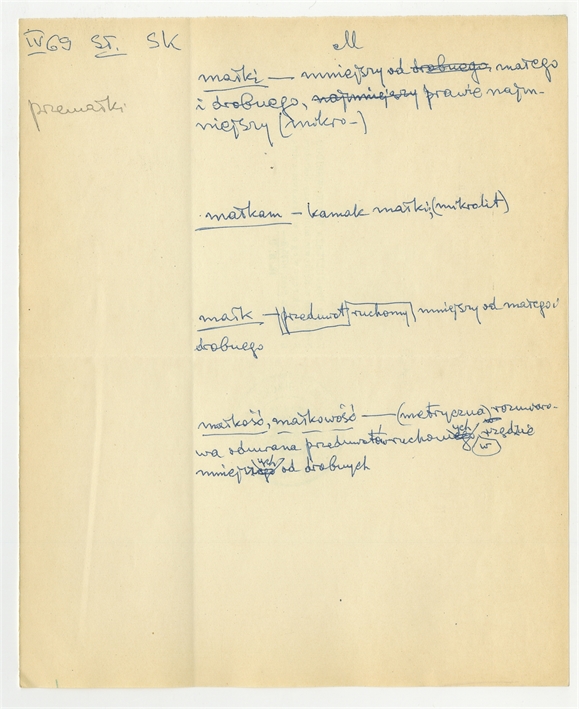 IV 69 ST. SK M
przemałki
małki — mniejszy od drobnego, małego
i drobnego, najmniejszy prawie najm-
niejszy (mikro-)
małkam — kamak małki, (mikrolit)
małk — przedmiot ruchomy mniejszy od małego i
drobnego
małkość, małkowość — (metryczna)
wa odmiana przedmiotów ruchomych w rzędzie
mniejszych od drobnych